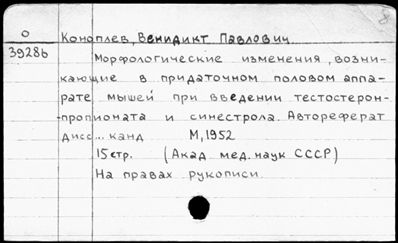 8
О Коноплев, Венидикт Павлович
39286 Морфологические изменения, возни-
кающие в придаточном половом аппа-
рате мышей при введении тестостерон-
-пропионата и синестрола. Автореферат
дисс... канд М, 1952
15 стр. (Акад. мед. наук СССР)
На правах рукописи.